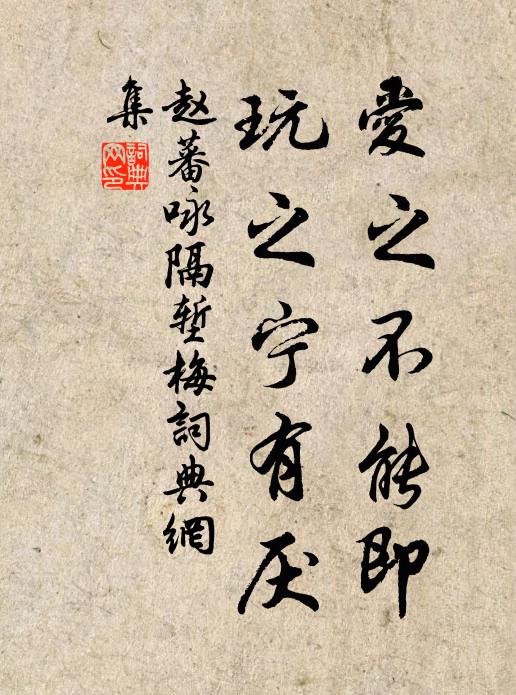 愛之不能即
玩之宁有厌
赵蕃咏隔堑梅詞典網
集
詞典
网印